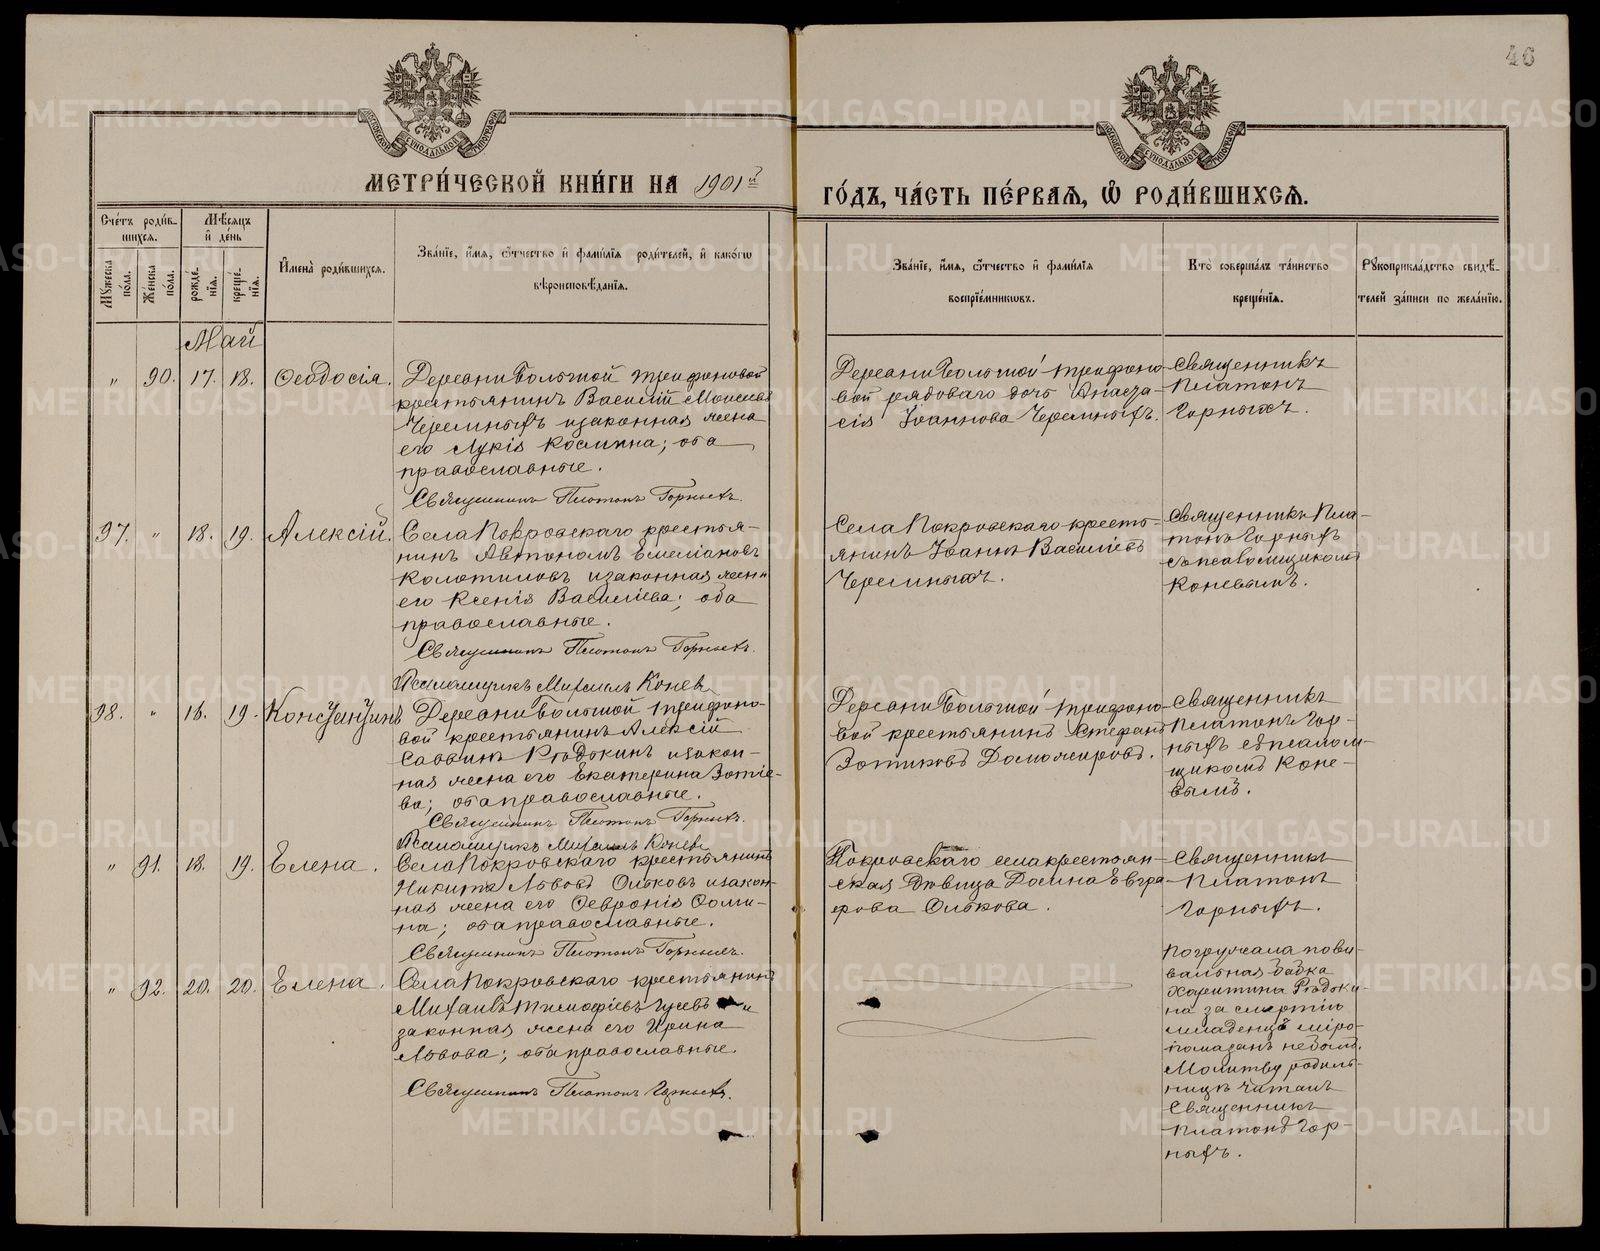 46
МЕТРИ́ЧЕСКОЙ КНИ́ГИ НА 1901й ГО́ДЪ, ЧА́СТЬ ПЕ́РВАЯ, Ѿ РОДИ́ВШИХСЯ.
Сче́тъ роди́в-
шихся.
Му́жеска по́ла.
Же́нска по́ла.
Мѣ́сяцъ и́ де́нь
рожде́нїя.
креще́нїя.
И҆мена̀ роди́вшихся.
Зва́нїе, и҆́мя, ѻ҆́тчество и҆ фами́лїя роди́телей, и҆ како́гѡ
вѣроисповѣ́данїя.
Зва́нїе, и҆́мя, ѻ҆́тчество и҆ фами́лїя
воспрїе́мникѡвъ.
Кто̀ соверша́лъ та́инство
креще́нїя.
Рꙋкоприкла́дство свидѣ́-
телей за́писи по жела́нїю.
Май
" 90. 17. 18. Ѳеодосія.
Деревни Большой Трифоновой
крестьянинъ Василій Моисеевъ
Черемныхъ и законная жена
его Лукія Космина; оба
православные.
Священникъ Платонъ Горныхъ.
Деревни Большой Трифоно-
вой рядоваго дочь Анаста-
сія Іоаннова Черемныхъ.
Священникъ
Платонъ
Горныхъ.
97. " 18. 19. Алексій.
Села Покровскаго крестья-
нинъ Автономъ Емельяновъ
Колотиловъ и законная жена
его Ксенія Васильева; оба
православные.
Священникъ Платонъ Горныхъ.
Псаломщикъ Михаилъ Коневъ
Села Покровскаго кресть-
янинъ Іоаннъ Васильевъ
Черемныхъ.
Священникъ Пла-
тонъ Горныхъ
съ псаломщикомъ
Коневымъ.
98. " 16. 19. Константинъ
Деревни Большой Трифоно-
вой крестьянинъ Алексій
Саввинъ Рѣдькинъ и закон-
ная жена его Екатерина Зотие-
ва; оба православные.
Священникъ Платонъ Горныхъ.
Псаломщикъ Михаилъ Коневъ
Деревни Большой Трифоно-
вой крестьянинъ Стефанъ
Зотиковъ Доможировъ.
Священникъ
Платонъ Гор-
ныхъ съ псалом-
щикомъ Коне-
вымъ.
" 91. 18. 19. Елена.
Села Покровскаго крестьянинъ
Никита Львовъ Ольковъ и закон-
ная жена его Ѳевронія Ѳоми-
на; оба православные.
Священникъ Платонъ Горныхъ.
Покровскаго села крестьян-
ская дѣвица Домна Евгра-
фова Олькова.
Священникъ
Платонъ
Горныхъ.
" 92. 20. 20. Елена.
Села Покровскаго крестьянинъ
Михаилъ Тимофіевъ Гусевъ и
законная жена его Ирина
Львова; оба православные.
Священникъ Платонъ Горныхъ.
Погружала пови-
вальная бабка
Харитина Рѣдьки-
на за смертію
младенецъ мѵро-
помазанъ не былъ.
Молитву родиль-
ницѣ читалъ
Священникъ
Платонъ Гор-
ныхъ.
METRIKI.GASO-URAL.RU